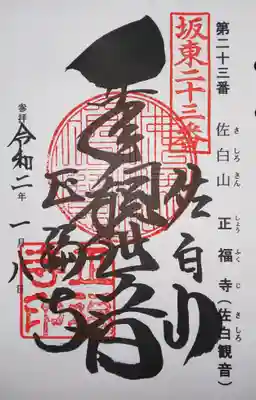 第二十三番 佐白山 正福寺(佐白観音)
さ しろ さん しょう ふく じ さ しろ
坂東二十三番
佐白山
千手観世音
正福寺
参拝 令和二年一月八日